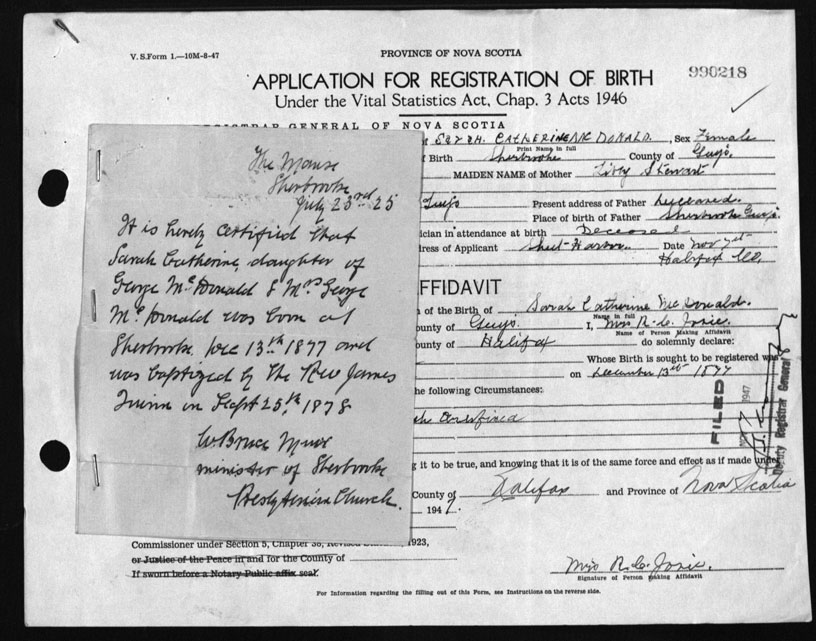 V. S. Form 1.—10M-8-47
PROVINCE OF NOVA SCOTIA
990218
APPLICATION FOR REGISTRATION OF BIRTH
Under the Vital Statistics Act, Chap. 3 Acts 1946
REGISTRAR GENERAL OF NOVA SCOTIA
CATHERINE MC DONALD, Sex Female
Print Name in full
Birth Sherbrooke County of Guys.
MAIDEN NAME of Mother Libby Stewart
Guys Present address of Father Deceased.
Place of birth of Father Sherbrooke Guys.
ician in attendance at birth Deceased
ress of Applicant Sheet Harbor Date Nov
Halifax Co,
FFIDAVIT
of the Birth of Sarah Catherine McDonald.
Name in full
ounty of Guys. I, Mrs R.
Name of Person Making Affidavit
ounty of Halifax do solemnly declare:
Whose Birth is sought to be registered was
on December 13th 1877
he following Circumstances:
g it to be true, and knowing that it is of the same force and effect as if made under
County of Halifax and Province of Nova Scotia
1947.
Commissioner under Section 5, Chapter 38, Revised 1923,
or Justice of the Peace in and for the County of
If sworn before a Notary Public affix seal.
Mrs R.
Signature of Person making Affidavit
For Information regarding the filling out of this Form, see Instructions on the reverse side.
FILED
1947
Deputy Registrar General
The Manse
Sherbrooke
July 23rd 25
It is hereby certified that
Sarah Catherine, daughter of
George McDonald & Mrs George
McDonald was born at
Sherbrooke Dec 13th 1877 and
was baptized by the Rev James
Quinn on Sept 25th 1878
W Bruce Muir
minister of Sherbrooke
Presbyterian Church.